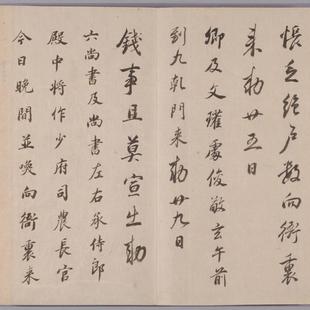 帳乏絕戶數向衙裏
来勅廿五日
卿及文瓘處俊敬玄午前
到九乾門来勅廿九日
錢事且莫宣出勅
六尚書及尚書左右承侍郎
殿中将作少府司農長官
今日晚間並喚向衙裏来